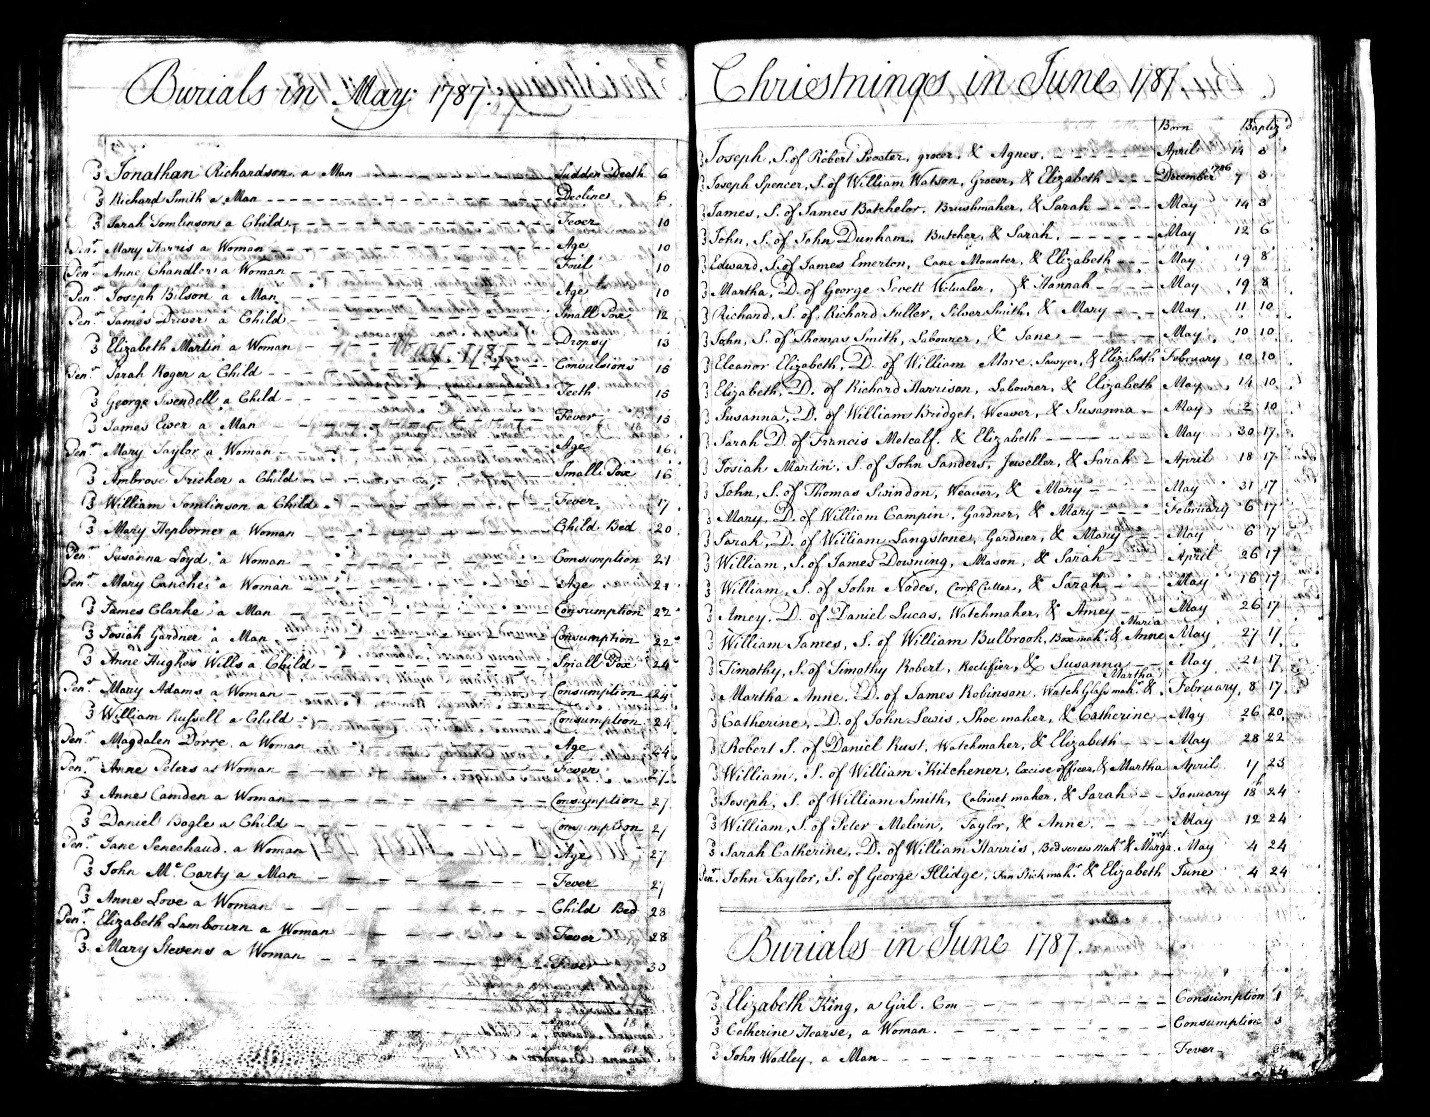 Burials in May 1787.
3 Jonathan Richardson a Man Sudden Death 6
3 Richard Smith a Man Decline 6
3 Sarah Tomlinson a Child Fever 10
Pen.r Mary Harris a Woman Age 10
Pen.r Anne Chandler a Woman Foul 10
Pen.r Joseph Bilson a Man Age 10
Pen.r James Driver a Child Small Pox 12
3 Elizabeth Martin a Woman Dropsy 13
Pen.r Sarah Rogan a Child Convulsions 15
3 George Swendell a Child Teeth 15
3 James Ewer a Man Fever 15
Pen.r Mary Taylor a Woman Age 16
3 Ambrose Fricker a Child Small Pox 16
3 William Tomlinson a Child Fever 17
3 Mary Hepborner a Woman Child Bed 20
Pen.r Susanna Loyd a Woman Consumption 21
Pen.r Mary a Woman Age 21
3 James Clarke a Man Consumption 22
3 Josiah Gardner a Man Consumption 22
3 Anne Hughs Wills a Child Small Pox 24
Pen.r Mary Adams a Woman Consumption 24
3 William Russell a Child Consumption 24
Pen.r Magdalen Dorre a Woman Age 24
Pen.r Anne Peters a Woman Fever 27
3 Anne Camden a Woman Consumption 27
3 Daniel Bogle a Child Consumption 27
Pen.r Jane Senechaud a Woman Age 27
3 John Mc. Carty a Man Fever 27
3 Anne Love a Woman Child Bed 28
Pen.r Elizabeth Lambourn a Woman Fever 28
3 Mary Stevens a Woman Fever 30
Christnings in June 1787.
Born Baptiz'd
3 Joseph, S. of Robert Proster, grocer, & Agnes. April 14 3
3 Joseph Spencer, S. of William Watson, Grocer, & Elizabeth December 1786 7 3
3 James, S. of James Batchelor, Brushmaker, & Sarah May 14 3
3 John, S. of John Dunham, Butcher, & Sarah. May 12 6
3 Edward, S. of James Emerton, Cane Mounter, & Elizabeth May 19 8
3 Martha, D. of George Levett Vitualer, & Hannah May 19 8
3 Richard, S. of Richard Fuller, Silver Smith, & Mary May 11 10
3 John, S. of Thomas Smith, Labourer, & Jane May 10 10
3 Eleanor Elizabeth, D. of William More, Sawyer, & Elizabeth February 10 10
3 Elizabeth, D. of Richard Harrison, Labourer, & Elizabeth May 14 10
3 Susanna, D. of William Bridget, Weaver, & Susanna May 2 10
3 Sarah D. of Francis Metcalf. & Elizabeth May 30 17
3 Josiah Martin, S. of John Sanders, Jeweller, & Sarah April 18 17
3 John, S. of Thomas Swindon, Weaver, & Mary May 31 17
3 Mary, D. of William Campin, Gardner, & Mary February 6 17
3 Sarah, D. of William Langstone, Gardner, & Mary May 6 17
3 William, S. of James Downing, Mason, & Sarah April 26 17
3 William, S. of John Nodes, Cork Cutter, & Sarah May 16 17
3 Amey, D. of Daniel Lucas, Watchmaker, & Amey May 26 17
3 William James, S. of William Bulbrook, Box mak.r & Anne Maria May 27 17
3 Timothy, S. of Timothy Robert, Rectifier, & Susanna May 21 17
3 Martha Anne, D. of James Robinson, Watch Glass mak.r & Martha February 8 17
3 Catherine, D. of John Lewis, Shoe maker, & Catherine May 26 20
3 Robert S. of Daniel Rust, Watchmaker, & Elizabeth May 28 22
3 William, S. of William Kitchener, Excise officer, & Martha April 17 23
3 Joseph, S. of William Smith, Cabinet maker, & Sarah January 18 24
3 William, S. of Peter Melvin, Taylor, & Anne. May 12 24
3 Sarah Catherine, D. of William Harris, Bedscrew mak.r & Marga.ret May 4 24
Pen.r John Taylor, S. of George Illidge, Fan Stick mak.r & Elizabeth June 4 24
Burials in June 1787.
3 Elizabeth King, a Girl. Con Consumption 1
3 Catherine Hearse, a Woman. Consumption 3
3 John Wodley, a Man Fever